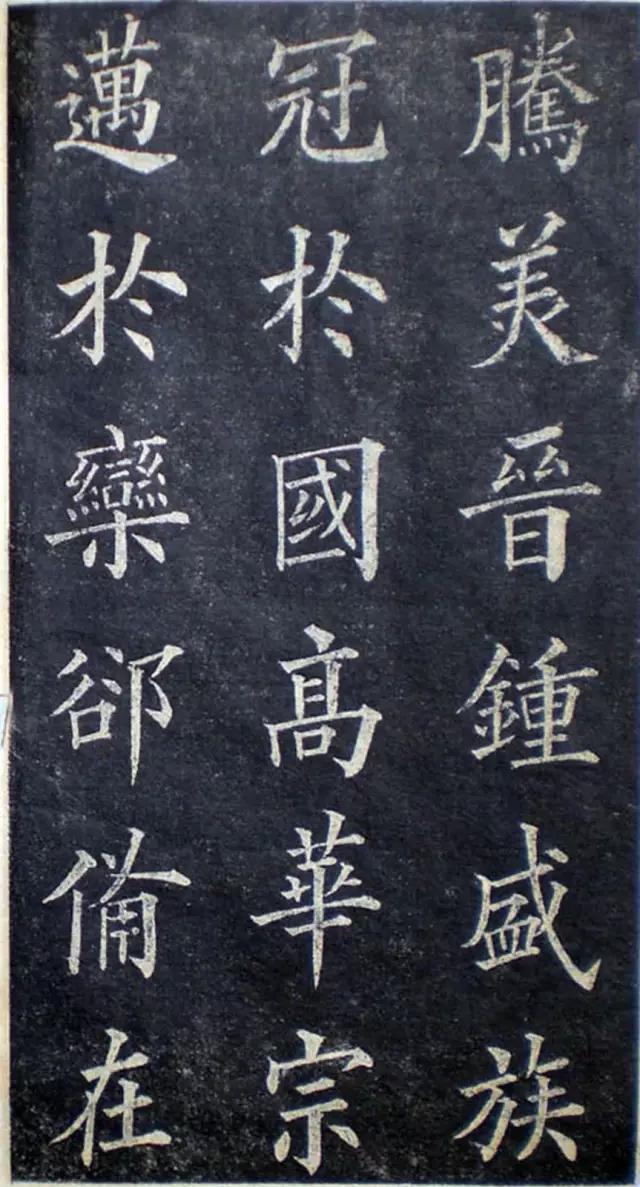 騰美晉鍾盛族
冠於國高華宗
邁於欒郤備在